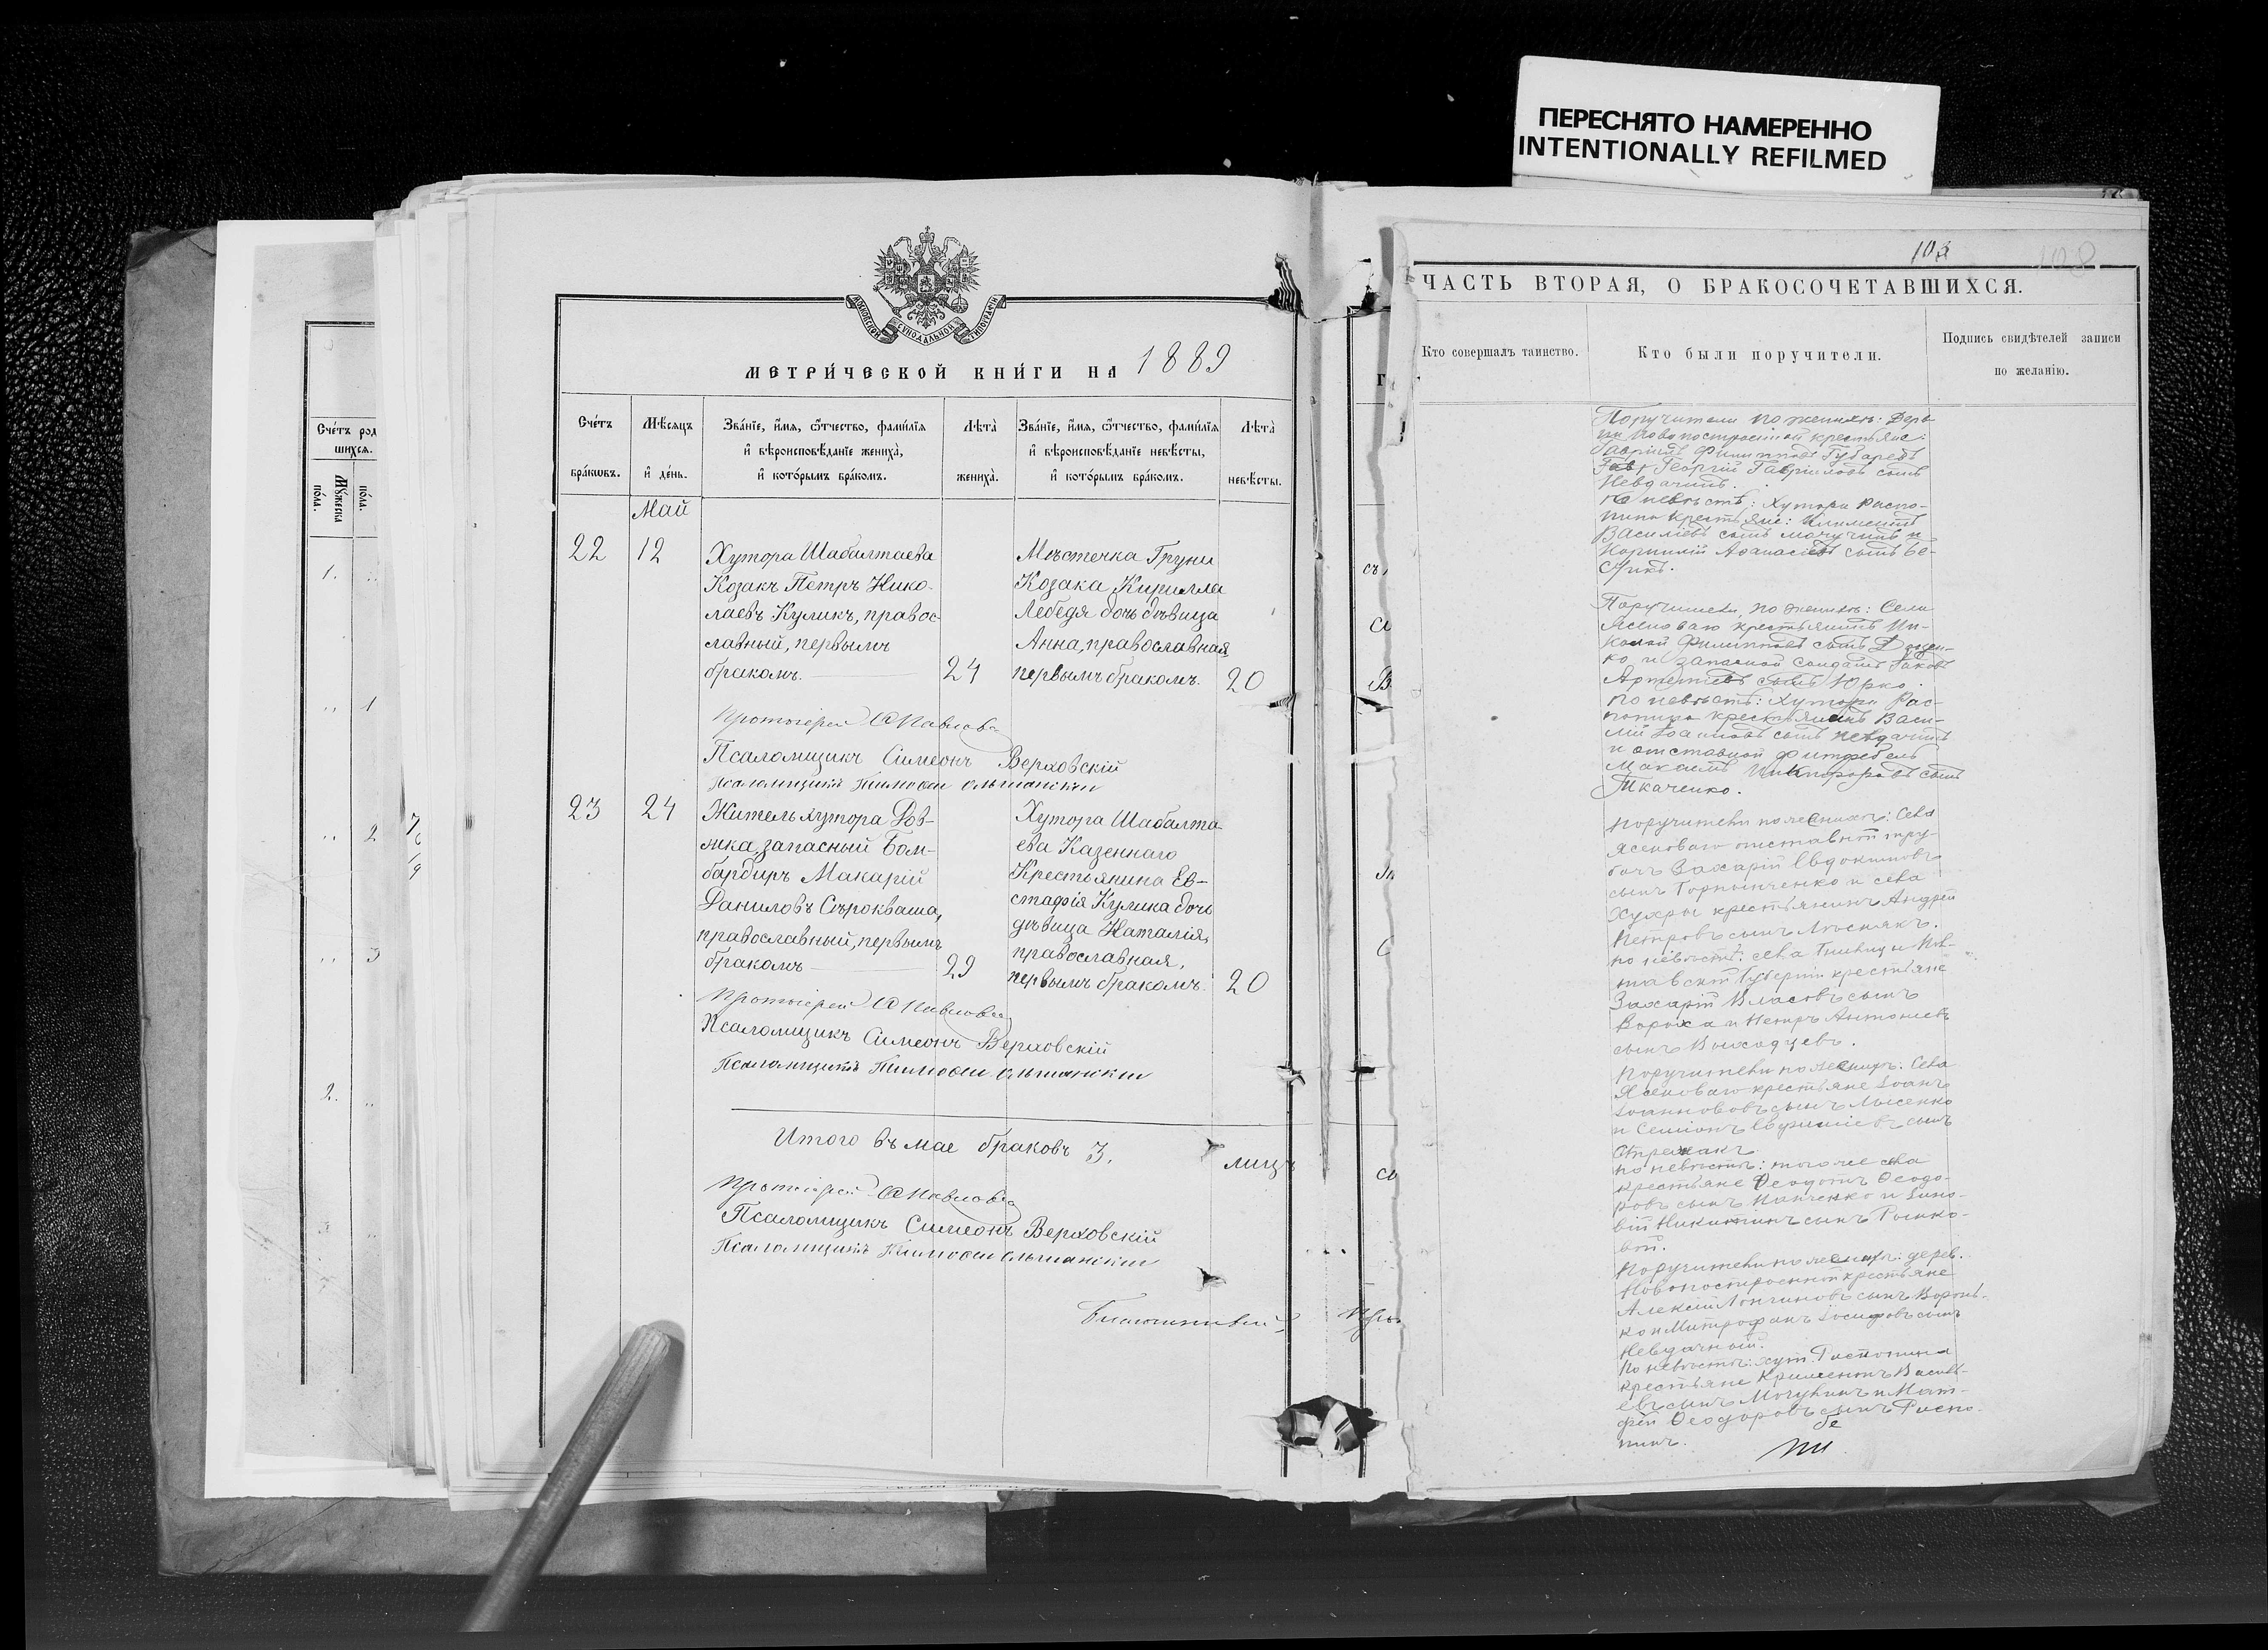 ПЕРЕСНЯТО НАМЕРЕННО
INTENTIONALLY REFILMED
Счéтъ род
шихся.
Мꙋ́жеска
пóла.
пóла.
1.
1
2
3
2.
МОСКОВСКОЙ СѴНОДАЛЬНОЙ ТИПОГРАФІИ
МЕТРИ́ЧЕСКОЙ КНИ́ГИ НА 1889
Счéтъ
брáкѡвъ.
Мѣ́сяцъ
и҆ дéнь.
Звáнїе, и҆́мѧ, ѻ҆́тчество, фами́лїѧ
и҆ вѣроисповѣ́данїе женихà,
и҆ котóрымъ брáкомъ.
Лѣ́та
женихà.
Звáнїе, и҆́мѧ, ѻ҆́тчество, фами́лїѧ
и҆ вѣроисповѣ́данїе невѣ́сты,
и҆ котóрымъ брáкомъ.
Лѣ́та
невѣ́сты.
Май
22
12
Хутора Шабалтаева
Козакъ Петръ Нико-
лаевъ Куликъ, правос
лавный, первымъ
бракомъ.
24
Мѣстечка Груни
Козака Кирилла
Лебедя дочь дѣвица
Анна, православная
первымъ бракомъ.
20
Протоіерей Павловъ
Псаломщикъ Симеонъ Верховскій
Псаломщикъ Тимофей Ольшанскій
23
24
Житель хутора Дов-
жка, запасный Бом-
бардиръ Макарій
Даниловъ Сѣрокваша,
православный, первымъ
бракомъ
29
Хутора Шабалта-
ева Казеннаго
Крестьянина Ев-
стафія Кулика дочь
дѣвица Наталія,
православная,
первымъ бракомъ.
20
Протоіерей Павловъ
Псаломщикъ Симеонъ Верховскій
Псаломщикъ Тимофей Ольшанскій
Итого въ мае браковъ 3.
лицъ
Протоіерей Павловъ
Псаломщикъ Симеонъ Верховскій
Псаломщикъ Тимофей Ольшанскій
103
108
ЧАСТЬ ВТОРАЯ, О БРАКОСОЧЕТАВШИХСЯ.
Кто совершалъ таинство.
Кто были поручители.
Подпись свидѣтелей записи
по желанію.
Поручители по женихѣ: Дерв
ни Новопостроенной крестьяне:
Гавріилъ Филипповъ Губаревъ
Георгій Гавріиловъ сынъ
Невдачинъ.
По невѣстѣ: Хутора Распо-
пина крестьяне: Климентій
Василіевъ сынъ и
Корнилій Аѳанасіевъ сынъ
Поручители по женихѣ: Села
Ясеноваго крестьянинъ Ни-
колай Филипповъ сынъ
ко и запасной солдатъ Іаковъ
Артемьевъ сынъ Юрко.
По невѣстѣ: Хутора Рас-
попина крестьянинъ Васи-
лій Іоанновъ сынъ Невдачинъ
и отставной фельдфебель
Максимъ Никифоровъ сынъ
Ткаченко.
Поручители по женихѣ: Села
Ясеноваго отставной тру-
бачъ Захарій Евдокимовъ
сынъ Горпынченко и села
Хухры крестьянинъ Андрей
Петровъ сынъ
По невѣстѣ: села Пол-
тавской Губерніи крестьяне
Захарій Власовъ сынъ
Ворожа и Петръ Антоніевъ
сынъ
Поручители по женихѣ: Села
Ясеноваго крестьяне Іоаннъ
Іоанновъ сынъ Лысенко
и Семіонъ Евфиміевъ сынъ
По невѣстѣ: того же села
крестьяне Ѳеодотъ Ѳеодо-
ровъ сынъ Панченко и Зино-
вій Никитинъ сынъ
вой.
Поручители по женихѣ: дерев.
Новопостроенной крестьяне
Алексій Лонгиновъ сынъ
ко и Митрофанъ Іосифовъ сынъ
По невѣстѣ: хут. Распопина
крестьяне Климентъ Василь-
евъ сынъ и Мат-
фей Ѳеодоровъ сынъ Распо-
пинъ.